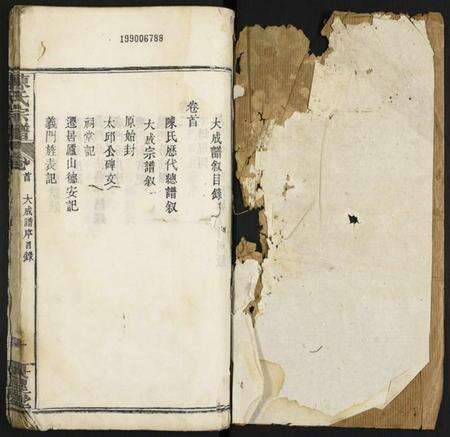 199006788
大成譜叙目錄
卷首
陳氏歷代總譜叙
大成宗譜叙
原始封
太邱公碑文
祠堂記
遷居廬山德安記
義門旌表記
陳氏宗譜
卷首
大成譜序目錄
一